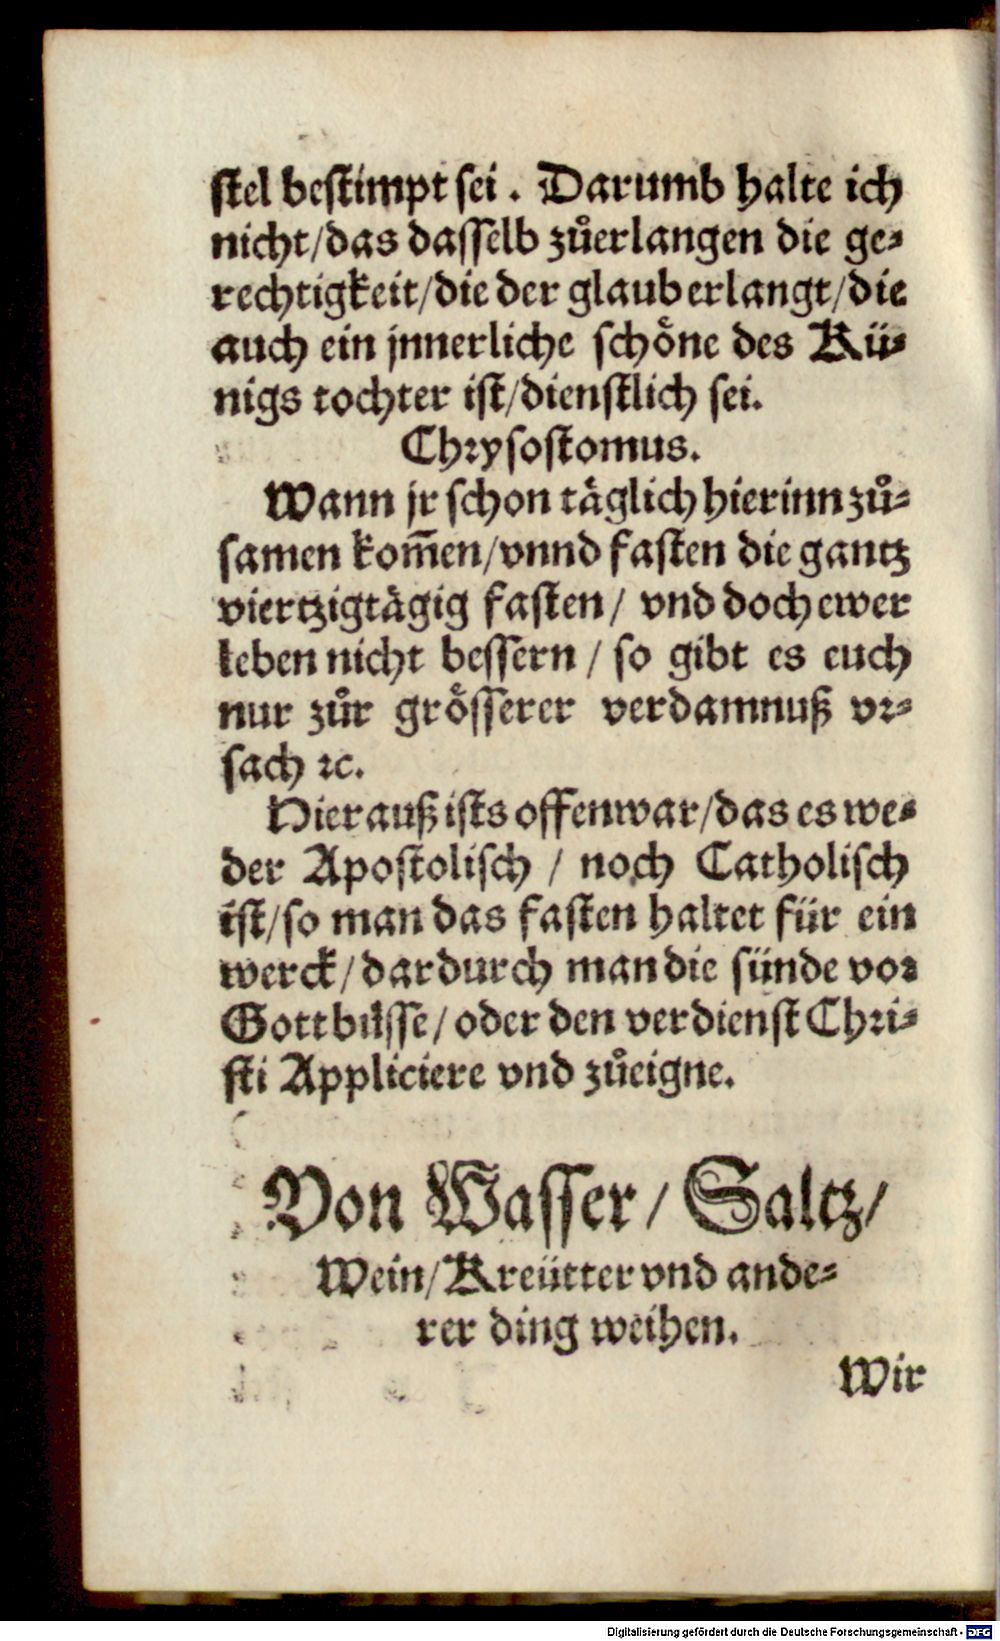 stel bestimpt sei. Darumb halte ich
nicht/das dasselb zůerlangen die ge⸗
rechtigkeit/die der glaub erlangt/die
auch ein jnnerliche schöne des Kü⸗
nigs tochter ist/dienstlich sei.
Chrysostomus.
Wann jr schon täglich hierinn zů⸗
samen kom̃en/vnnd fasten die gantz
viertzigtägig fasten/ vnd doch ewer
leben nicht bessern / so gibt es euch
nur zůr grösserer verdamnuß vr⸗
sach ꝛc.
Hierauß ists offenwar/das es we⸗
der Apostolisch / noch Catholisch
ist/so man das fasten haltet für ein
werck/dardurch man die sünde vor
Gott büsse/oder den verdienst Chri⸗
sti Appliciere vnd zůeigne.
Von Wasser/ Saltz/
Wein/Kreütter vnd ande⸗
rer ding weihen.
Wir
Digitalisierung gefördert durch die Deutsche Forschungsgemeinschaft - DFG